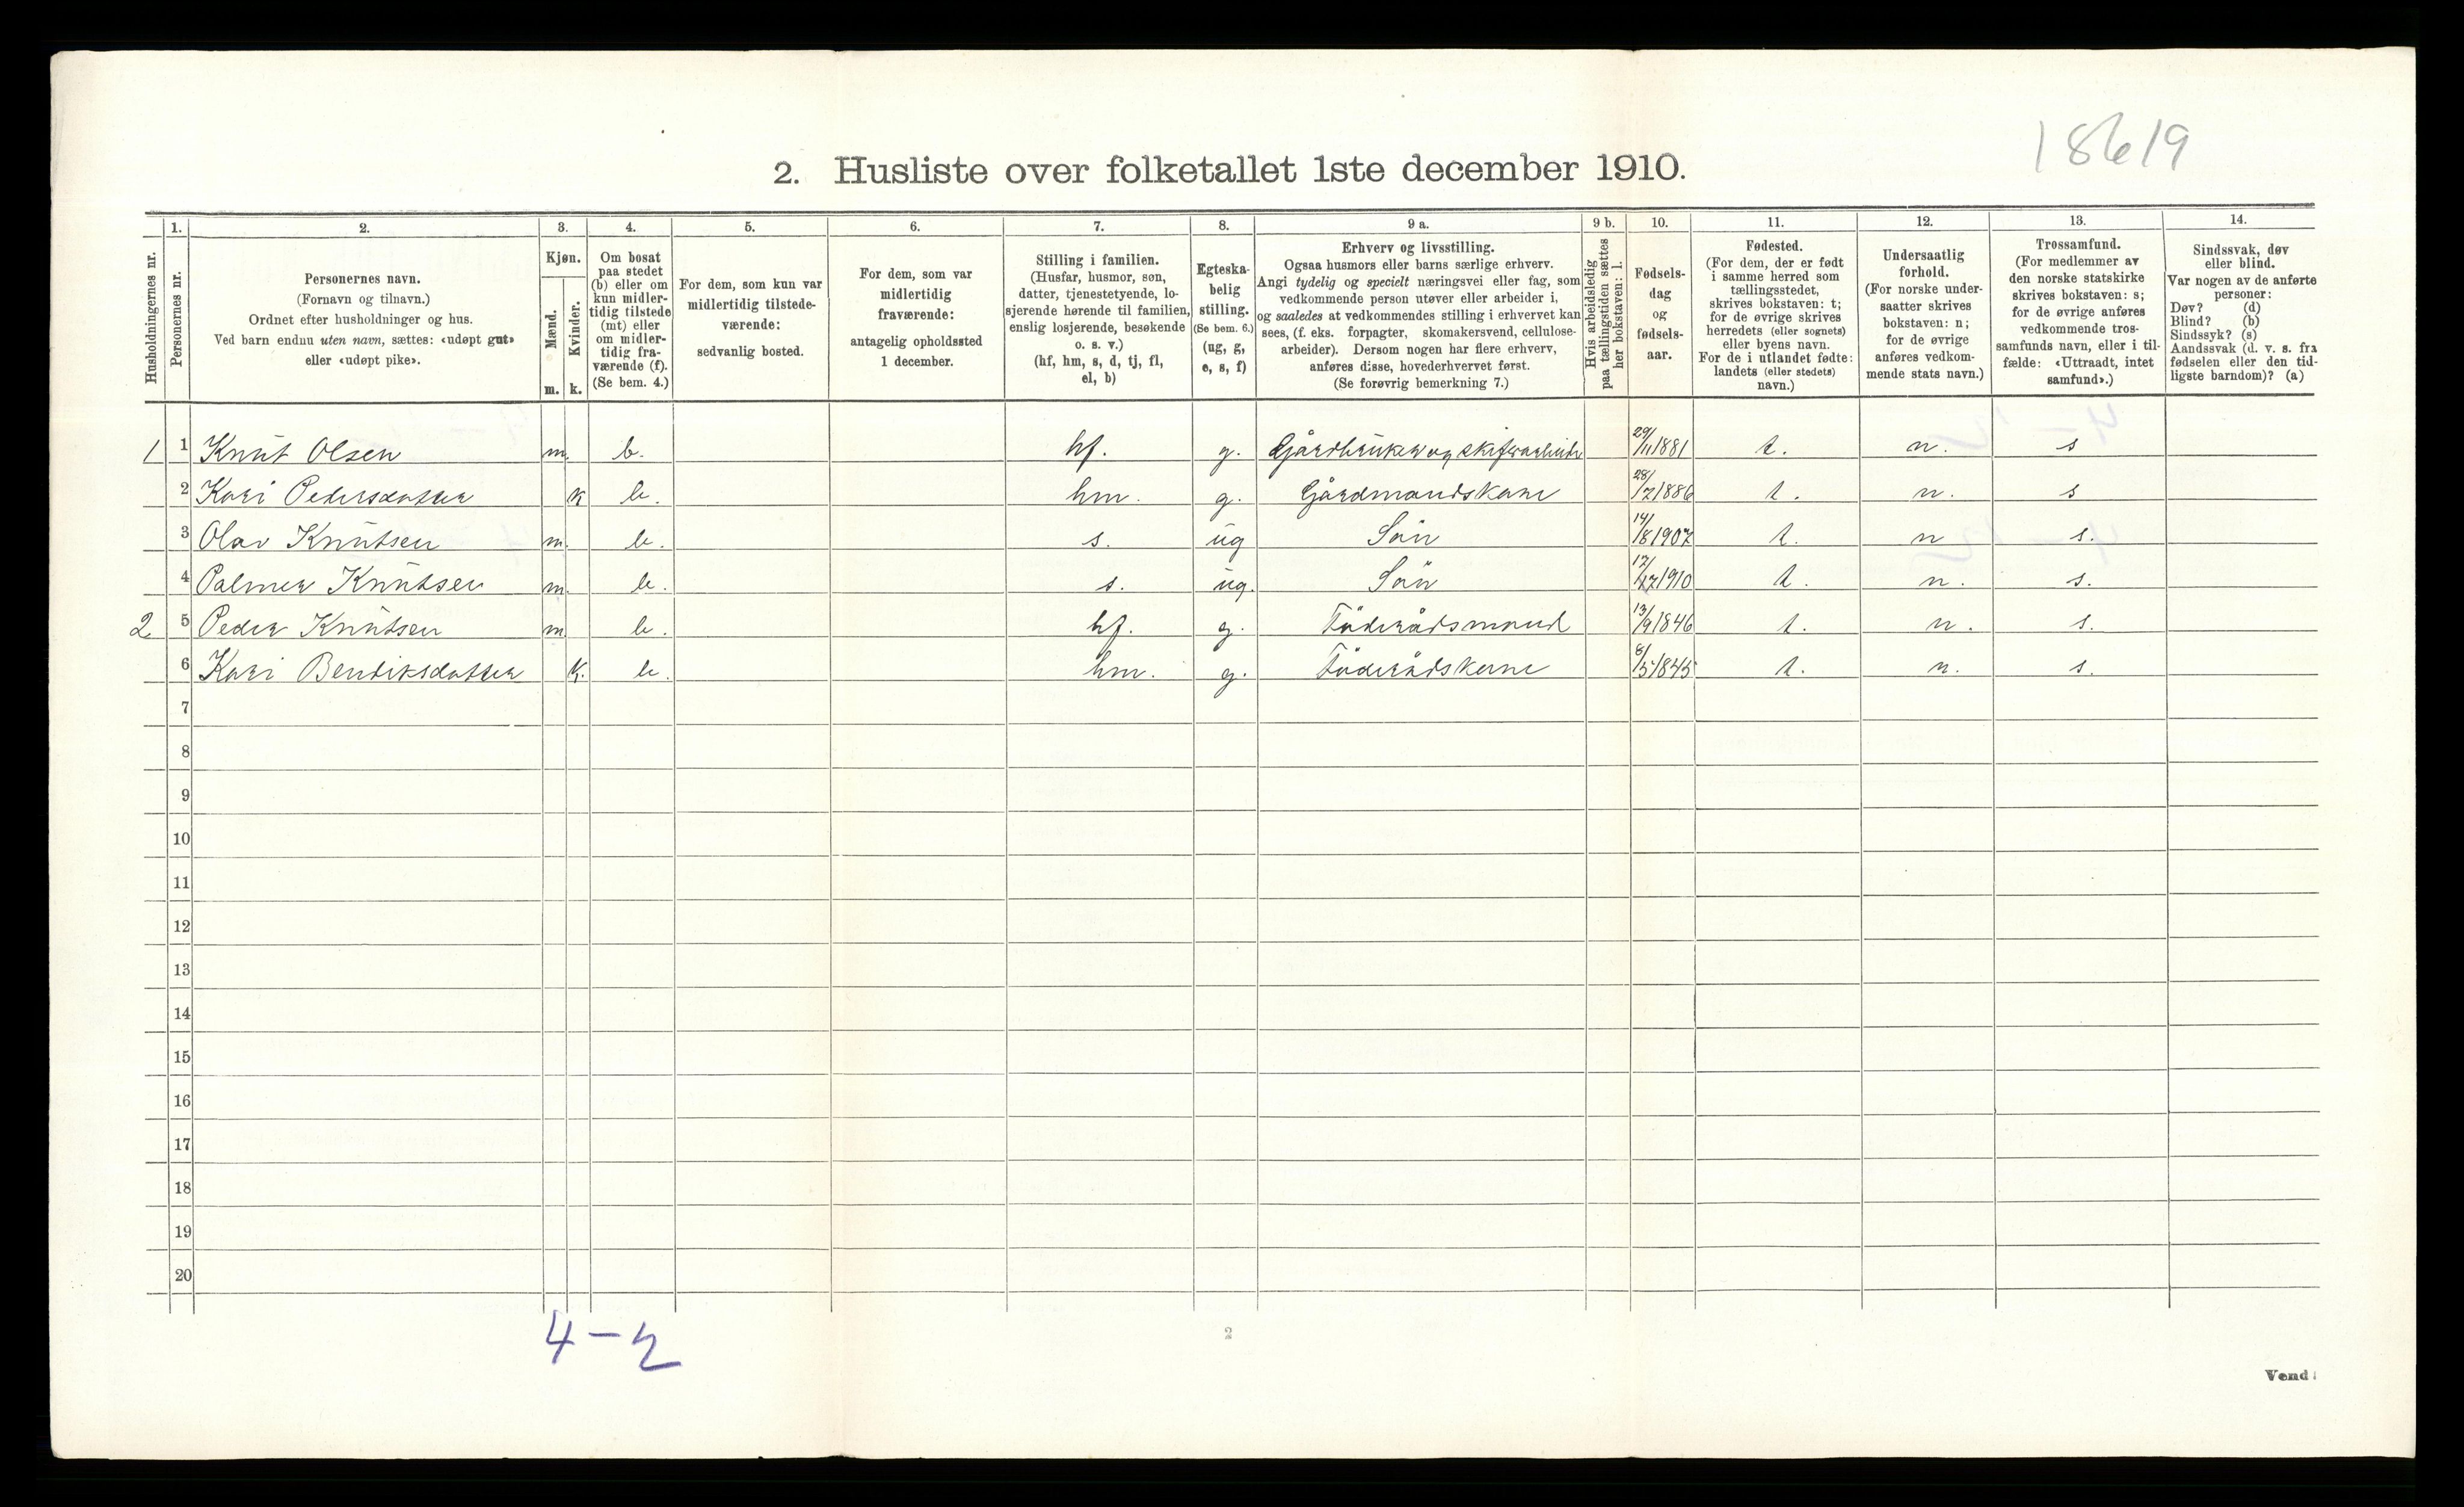 18619
2. Husliste over folketallet 1ste december 1910.
Husholdningernes nr.
1.
Personernes nr.
2.
Personernes navn.
(Fornavn og tilnavn.)
Ordnet efter husholdninger og hus.
Ved barn endnu uten navn, sættes: «udøpt gut»
eller «udøpt pike».
3.
Kjøn.
Mænd.
m.
Kvinder.
k.
4.
Om bosat
paa stedet
(b) eller om
kun midler-
tidig tilstede
(mt) eller
om midler-
tidig fra-
værende (f).
(Se bem. 4.)
5.
For dem, som kun var
midlertidig tilstede-
værende:
sedvanlig bosted.
6.
For dem, som var
midlertidig
fraværende:
antagelig opholdssted
1 december.
7.
Stilling i familien.
(Husfar, husmor, søn,
datter, tjenestetyende, lo-
sjerende hørende til familien,
enslig losjerende, besøkende
o. s. v.)
(hf, hm, s, d, tj, fl,
el, b)
8.
Egteska-
belig
stilling.
(Se bem. 6.)
(ug, g,
e, s, f)
9 a.
Erhverv og livsstilling.
Ogsaa husmors eller barns særlige erhverv.
Angi tydelig og specielt næringsvei eller fag, som
vedkommende person utøver eller arbeider i,
og saaledes at vedkommendes stilling i erhvervet kan
sees, (f. eks. forpagter, skomakersvend, cellulose-
arbeider). Dersom nogen har flere erhverv,
anføres disse, hovederhvervet først.
(Se forøvrig bemerkning 7.)
9 b.
Hvis arbeidsledig
paa tællingstiden sættes
her bokstaven: l.
10.
Fødsels-
dag
og
fødsels-
aar.
11.
Fødested.
(For dem, der er født
i samme herred som
tællingsstedet,
skrives bokstaven: t;
for de øvrige skrives
herredets (eller sognets)
eller byens navn.
For de i utlandet fødte:
landets (eller stedets)
navn.)
12.
Undersaatlig
forhold.
(For norske under-
saatter skrives
bokstaven: n;
for de øvrige
anføres vedkom-
mende stats navn.)
13.
Trossamfund.
(For medlemmer av
den norske statskirke
skrives bokstaven: s;
for de øvrige anføres
vedkommende tros-
samfunds navn, eller i til-
fælde: «Uttraadt, intet
samfund».)
14.
Sindssvak, døv
eller blind.
Var nogen av de anførte
personer:
Døv? (d)
Blind? (b)
Sindssyk? (s)
Aandssvak (d. v. s. fra
fødselen eller den tid-
ligste barndom)? (a)
1 1 Knut Olsen m. b. hf. g. Gårdbruker og skiferarbeide 29/11 1881 t. n. s
2 Kari Pedersdatter k b. hm. g. Gårdmandskone 28/2 1886 t. n. s
3 Olav Knutsen m. b. s. ug Sön 14/8 1907 t. n s.
4 Palmer Knutsen m. b. s. ug. Sön 1910 t. n. s.
2 5 Peder Knutsen m b. hf. g. Föderådsmand 13/9 1846 t. n. s.
6 Kari Bendiksdatter k. b. hm. g. Föderådskone 8/5 1845 t. n. s.
7
8
9
10
11
12
13
14
15
16
17
18
19
20
4 - 2
2
Vend!